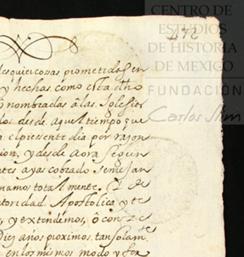 CENTRO DE
ESTUDIOS
DE HISTORIA
DE MEXICO
FUNDACIÓN
Carlos Slim
cosas prometidas, en
y hechas como esta dho
nombradas à las Iglesias
desde aquel tiempo que
el presente dia por razon
y desde aora segun
cobrado semejan
namos totalmente,
toridad Apostolica y te
y extendemos, ò con
Diez años proximos, tan solam
en los mismos modo y for